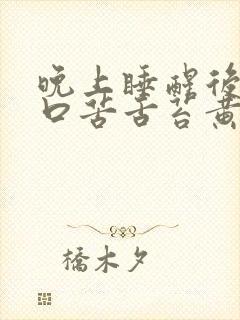 晚上睡醒後
口苦舌苔黄
橋木夕